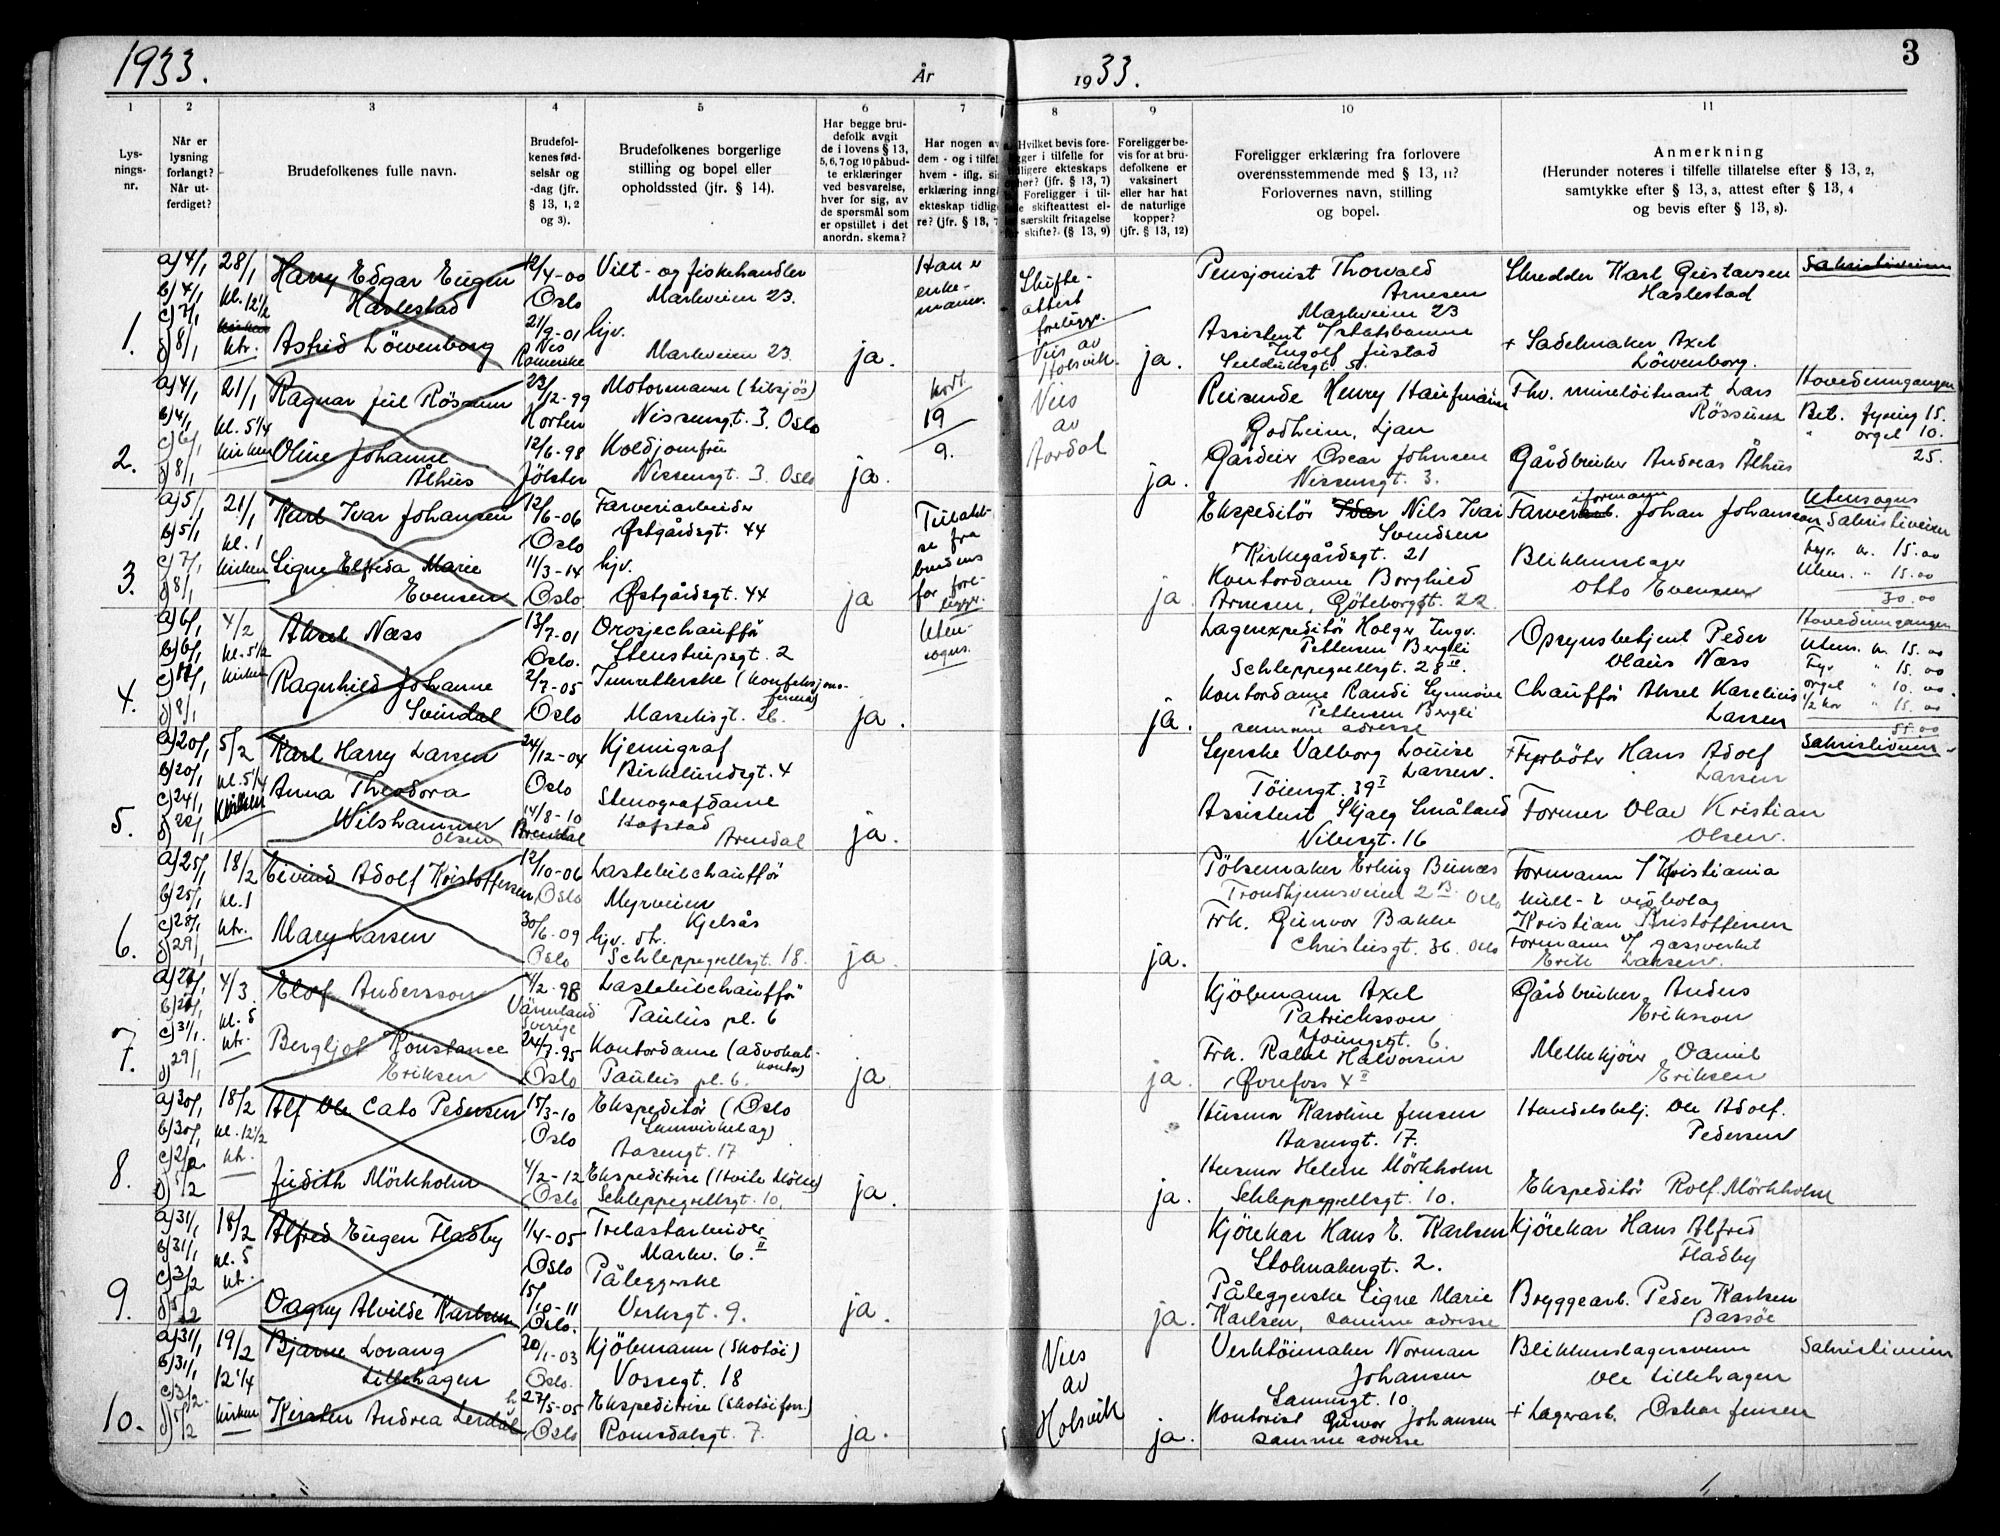 1933.
År
1933.
3
1
2
3
4
5
6
7
8
9
10
11
Lys-
nings-
nr.
Når er
lysning
forlangt?
Når ut-
ferdiget?
Brudefolkenes fulle navn.
Brudefol-
kenes fød-
selsår og
-dag (jfr.
§ 13, 1, 2
og 3).
Brudefolkenes borgerlige
stilling og bopel eller
opholdssted (jfr. § 14).
Har begge bru-
defolk avgit
de i lovens § 13,
5, 6, 7 og 10 påbud-
te erklæringer
ved besvarelse,
hver for sig, av
de spørsmål som
er opstillet i det
anordn. skema?
Har nogen av
dem - og i tilfel
hvem - iflg. si
erklæring inngå
ekteskap tidlig
re? (jfr. § 13, 7
Hvilket bevis fore-
gger i tilfelle for
ligere ekteskaps
hør? (jfr. § 13, 7)
Foreligger i til-
e skifteattest el-
særskilt fritagelse
skifte?. (§ 13, 9)
Foreligger be-
vis for at bru-
defolkene er
vaksinert
eller har hat
de naturlige
kopper?
(jfr. § 13, 12)
Foreligger erklæring fra forlovere
overensstemmende med § 13, 11?
Forlovernes navn, stilling
og bopel.
Anmerkning
(Herunder noteres i tilfelle tillatelse efter § 13, 2,
samtykke efter § 13, 3, attest efter § 13, 4
og bevis efter § 13, 8).
1.
a) 4/1
b) 4/1
c) 7/1
d) 8/1
28/1
kl. 12 1/2
ktr.
Harry Edgar Eugen
Haslestad
Astrid Löwenborg
12/4-00
Oslo
21/9-01
Nes
Romerike
Vilt- og fiskehandler
Markveien 23.
hjv.
Markveien 23.
ja.
Han er
enke-
mann.
Skifte-
attest
foreligger.
Vies av
Holsvik.
ja.
Pensjonist Thorvald
Arnesen
Markveien 23
Assistent v/statsbanene
Ingolf Justad
Seilduksgt 5.
Skredder Karl Gustavsen
Haslestad
+ Sadelmaker Axel
Löwenborg.
Sakristiveien
2.
a) 4/1
b) 4/1
c) 6/1
d) 8/1
21/1
kl. 5 1/4
kirken
Ragnar Juel Rössum
Oline Johanne
Ålhus
23/12-99
Horten
12/6-98
Jölster
Motormann (tilsjøs)
Nissensgt. 3. Oslo
Koldjomfru
Nissensgt. 3 Oslo
ja.
19
9.
Vies
av
Aardal
ja.
Reisende Henry Haufmann
Godheim, Ljan
Gårdeier Oscar Johnsen
Nissensgt. 3.
Fhv. mineløitnant Lars
Rössum
Gårdbruker Andreas Ålhus
Hovedinngangen
Bet. fyring 15.
" orgel 10.
25.
3.
a) 5/1
b) 5/1
c) 7/1
d) 8/1
21/1
kl. 1
kirken
Karl Ivar Johansen
Signe Elfrida Marie
Evensen
12/6-06
Oslo
11/3-14
Oslo
Farveriarbeider
Østgårdsgt. 44
hjv.
Østgårdsgt. 44
ja
Tillatel-
se fra
brudens
far fore-
ligger.
ja.
Ekspeditör Nils Ivar
Svendsen
Kirkegårdsgt. 21
Kontordame Borghild
Arnesen, Göteborggt. 22.
formann
Farveriarb. Johan Johansson
Blikkenslager
Otto Evensen
Utensogns
Sakristiveien
Fyr. kr. 15.00
Uten. " 15.00
30.00
4.
a) 6/1
b) 6/1
d) 8/1
4/2
kl. 5 1/2
kirken
Aksel Næss
Ragnhild Johanne
Svindal
13/7-01
Oslo.
2/7-05
Oslo
Drosjechauffør
Stenstrupsgt. 2
Tilretterske (konfeksjons-
firma)
Marselisgt. 26.
ja.
Uten-
sogns.
ja.
Lagerexpeditör Holger Ingv.
Pettersen Bergli
Schleppegrellsgt. 28 II
Kontordame Randi Synnøve
Pettersen Bergli
samme adresse
Opsynsbetjent Peder
Olaus Næss
Chauffør Aksel Karelius
Larsen
Hovedinngangen
Utens. kr. 15.00
Fyr " 15.00
orgel " 10.00
1/2 kor " 15.00
55.00
5.
a) 20/1
b) 20/1
c) 24/1
d) 22/1
5/2
kl. 5 1/4
Kirken
Karl Harry Larsen
Anna Theodora
Wilshammer
Olsen
24/12-04
Oslo
14/8-10
Arendal
Kjemigraf
Birkelundsgt. 4
Stenografdame
Hofstad
Arendal
ja.
Syerske Valborg Louise
Larsen.
Töiengt. 39 I
Assistent Skjalg Småland
Nilsensgt. 16
+ Fyrböter Hans Adolf
Larsen
Former Olav Kristian
Olsen.
Sakristiveien
6.
a) 25/1
b) 25/1
c) 28/1
d) 29/1
18/2
kl. 1
ktr.
Eivind Adolf Kristoffersen
Mary Larsen
12/10-06
Oslo
30/6-09
Oslo
Lastebilchauffør
Myrveien
Kjelsås
hjv. dtr.
Schleppegrellsgt. 18.
ja.
ja.
Pölsemaker Erling Bunæs
Trondhjemsveien 2 B. Oslo
Frk. Gunvor Bakke
Christiesgt. 36. Oslo
Formann v/Kristiania
kull- & vedbolag
Kristian Kristoffersen
Formann v/ gassverket
Erik Larsen.
7.
c) 31/1.
d) 29/1
4/3.
kl. 5
ktr.
Elof Andersson
Bergljot Konstance
Eriksen
4/2-98
Värmland
Sverige
24/7-95
Oslo
Lastebilchauffør
Paulus pl. 6
Kontordame (advokat-
kontor)
Paulus pl. 6.
ja.
ja.
Kjöbmann Axel
Patricksson
Youngsgt. 6.
Frk. Rakel Halvorsen
Øvrefoss 4 II
Gårdbruker Anders
Eriksson
Melkekjører Daniel
Eriksen
8.
a) 30/1
b) 30/1
c) 2/2
d) 5/2
18/2
kl. 12 1/2
ktr.
Alf Ole Cato Pedersen
Judith Mörkholm
15/3-10
Oslo
4/2-12
Oslo
Ekspeditör (Oslo
Samvirkelag)
Aasengt. 17
Ekspeditrise (Hvite Mølle)
Schleppegrellsgt. 10.
ja.
ja.
Husmor Karoline Jensen
Aasengt. 17.
Husmor Helene Mörkholm
Schleppegrellsgt. 10.
Handelsbetj. Ole Adolf.
Pedersen
Ekspeditör Rolf Mörkholm
9.
a) 31/1
b) 31/1
c) 3/2
d) 5/2
18/2
kl. 5
kt.
Alfred Eugen Fladby
Dagny Alvilde Karlsen
1/4-05
Oslo
15/10-11
Oslo.
Trelastarbeider
Markv. 6. II
Påleggerske
Verksgt. 9.
ja.
ja.
Kjörekar Hans E. Karlsen
Stolmakergt. 2.
Påleggerske Signe Marie
Karlsen, samme adresse
Kjörekar Hans Alfred
Fladby
Bryggearb. Peder Karlsen
Bassöe
10.
a) 31/1
b) 31/1
c) 3/2.
d) 5/2
19/2
12 1/4
kirken
Bjarne Lorang
Lillehagen
Kirsten Andrea Lerdal
20/1-03
Oslo.
27/5-05
Oslo
Kjöbmann (Skotöi)
Vossegt. 18
Ekspeditrise (skotöiforr.)
Romsdalsgt. 7.
ja.
Vies
av
Holsvik
ja.
Verktöimaker Norman
Johansen
Sannergt. 10
Kontorist Gunvor Johansen
samme adresse
Blikkenslagersvenn
Ole Lillehagen
+ Lagerarb. Oskar Jensen
Sakristiveien